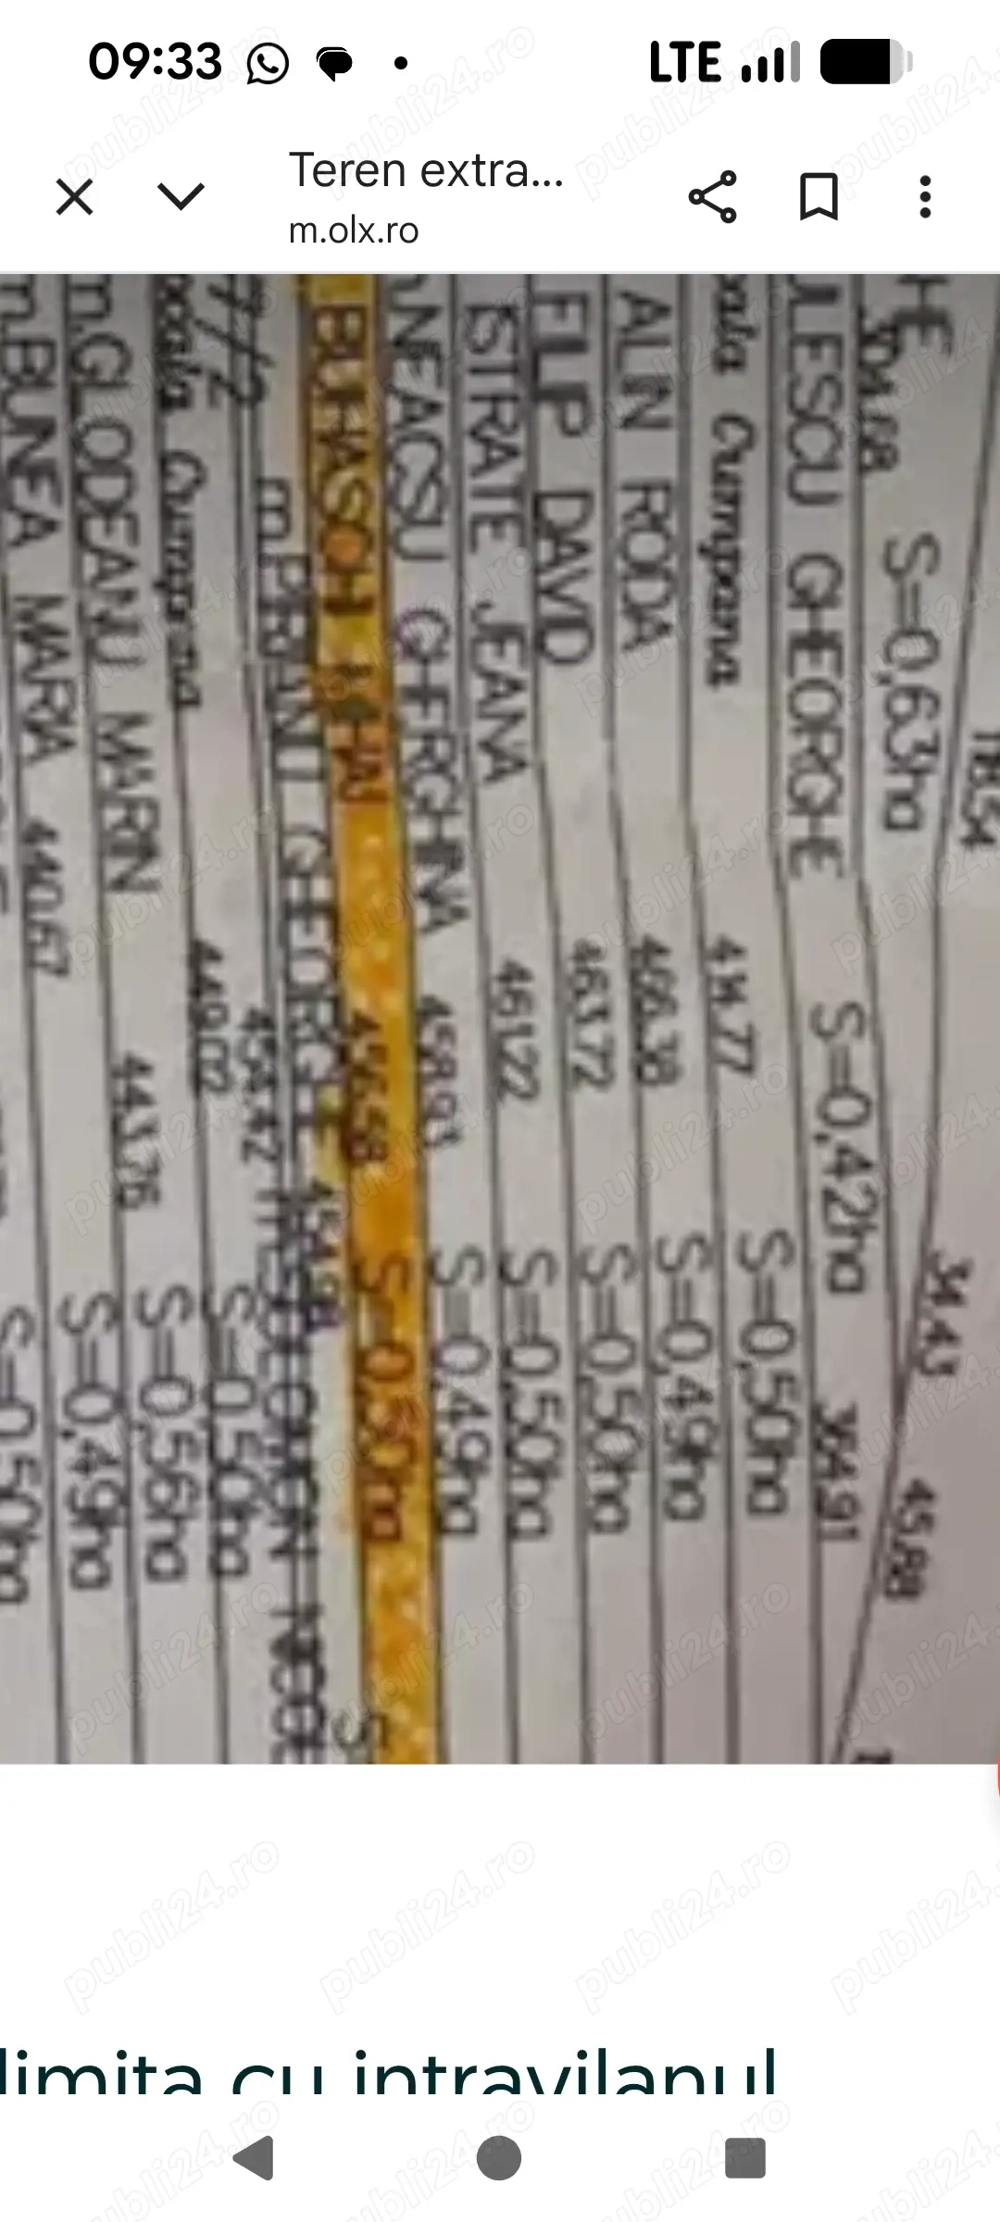 09:33
LTE
Teren extra...
m.olx.ro
HE S=0,63ha
118,54
34,43
45,88
ULESCU GHEORGHE S=0,42ha
364,91
Cumpana
414,77 S=0,50ha
ALIN RODA 466,38 S=0,49ha
FILIP DAVID 463,72 S=0,50ha
ISTRATE JEANA 461,22 S=0,50ha
NEACSU GHERGHINA 458,93 S=0,49ha
456,58 S=0,50ha
GHEORGHE
454,42
Cumpana 449,02 S=0,50ha
S=0,56ha
m.GLODEANU MARIN 443,76 S=0,49ha
m.BUNEA MARIA 440,67 S=0,50ha
limita cu intravilanul
publi24.ro